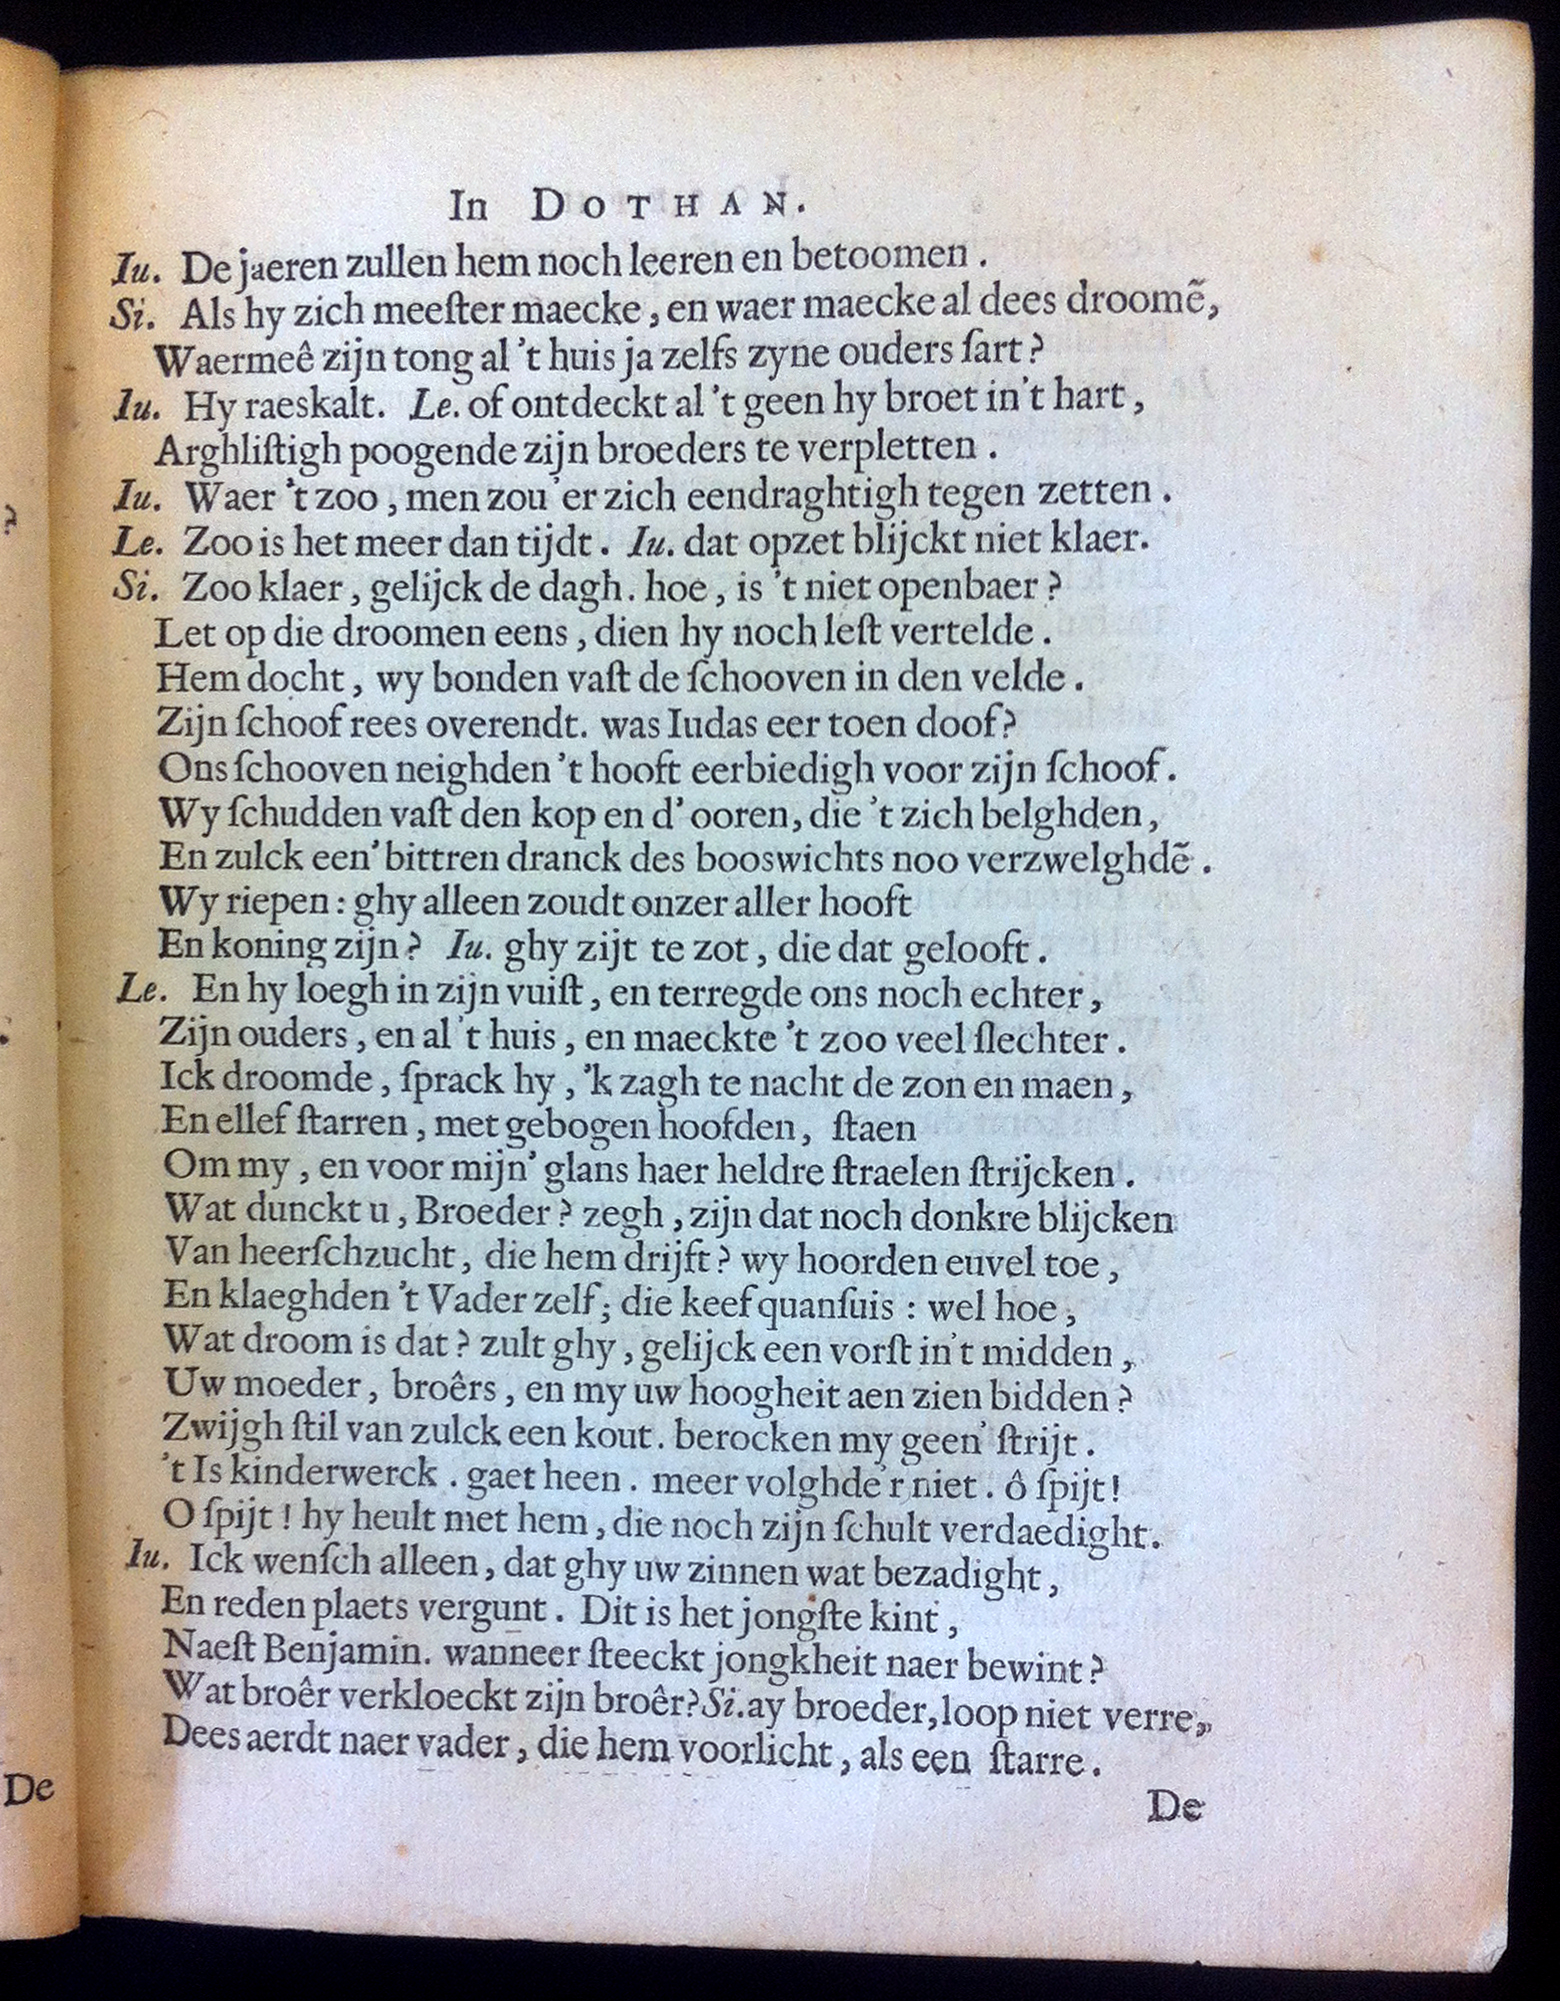 In DOTHAN.
Iu. De jaeren zullen hem noch leeren en betoomen.
Si. Als hy zich meeſter maecke, en waer maecke al dees droomẽ,
Waermeê zijn tong al 't huis ja zelfs zyne ouders ſart?
Iu. Hy raeskalt. Le. of ontdeckt al 't geen hy broet in't hart,
Arghliſtigh poogende zijn broeders te verpletten.
Iu. Waer 't zoo, men zou'er zich eendraghtigh tegen zetten.
Le. Zoo is het meer dan tijdt. Iu. dat opzet blijckt niet klaer.
Si. Zoo klaer, gelijck de dagh. hoe, is 't niet openbaer?
Let op die droomen eens, dien hy noch leſt vertelde.
Hem docht, wy bonden vaſt de ſchooven in den velde.
Zijn ſchoof rees overendt. was Iudas eer toen doof?
Ons ſchooven neighden 't hooft eerbiedigh voor zijn ſchoof.
Wy ſchudden vaſt den kop en d'ooren, die 't zich belghden,
En zulck een' bittren dranck des booswichts noo verzwelghdẽ.
Wy riepen: ghy alleen zoudt onzer aller hooft
En koning zijn? Iu. ghy zijt te zot, die dat gelooft.
Le. En hy loegh in zijn vuiſt, en terregde ons noch echter,
Zijn ouders, en al 't huis, en maeckte 't zoo veel ſlechter.
Ick droomde, ſprack hy, 'k zagh te nacht de zon en maen,
En ellef ſtarren, met gebogen hoofden, ſtaen
Om my, en voor mijn' glans haer heldre ſtraelen ſtrijcken.
Wat dunckt u, Broeder? zegh, zijn dat noch donkre blijcken
Van heerſchzucht, die hem drijft? wy hoorden euvel toe,
En klaeghden 't Vader zelf; die keef quanſuis: wel hoe,
Wat droom is dat? zult ghy, gelijck een vorſt in't midden,
Uw moeder, broêrs, en my uw hoogheit aen zien bidden?
Zwijgh ſtil van zulck een kout. berocken my geen' ſtrijt.
't Is kinderwerck. gaet heen. meer volghde'r niet. ô ſpijt!
O ſpijt! hy heult met hem, die noch zijn ſchult verdaedight.
Iu. Ick wenſch alleen, dat ghy uw zinnen wat bezadight,
En reden plaets vergunt. Dit is het jongſte kint,
Naeſt Benjamin. wanneer ſteeckt jongkheit naer bewint?
Wat broêr verkloeckt zijn broêr? Si. ay broeder, loop niet verre,
Dees aerdt naer vader, die hem voorlicht, als een ſtarre.
De
De